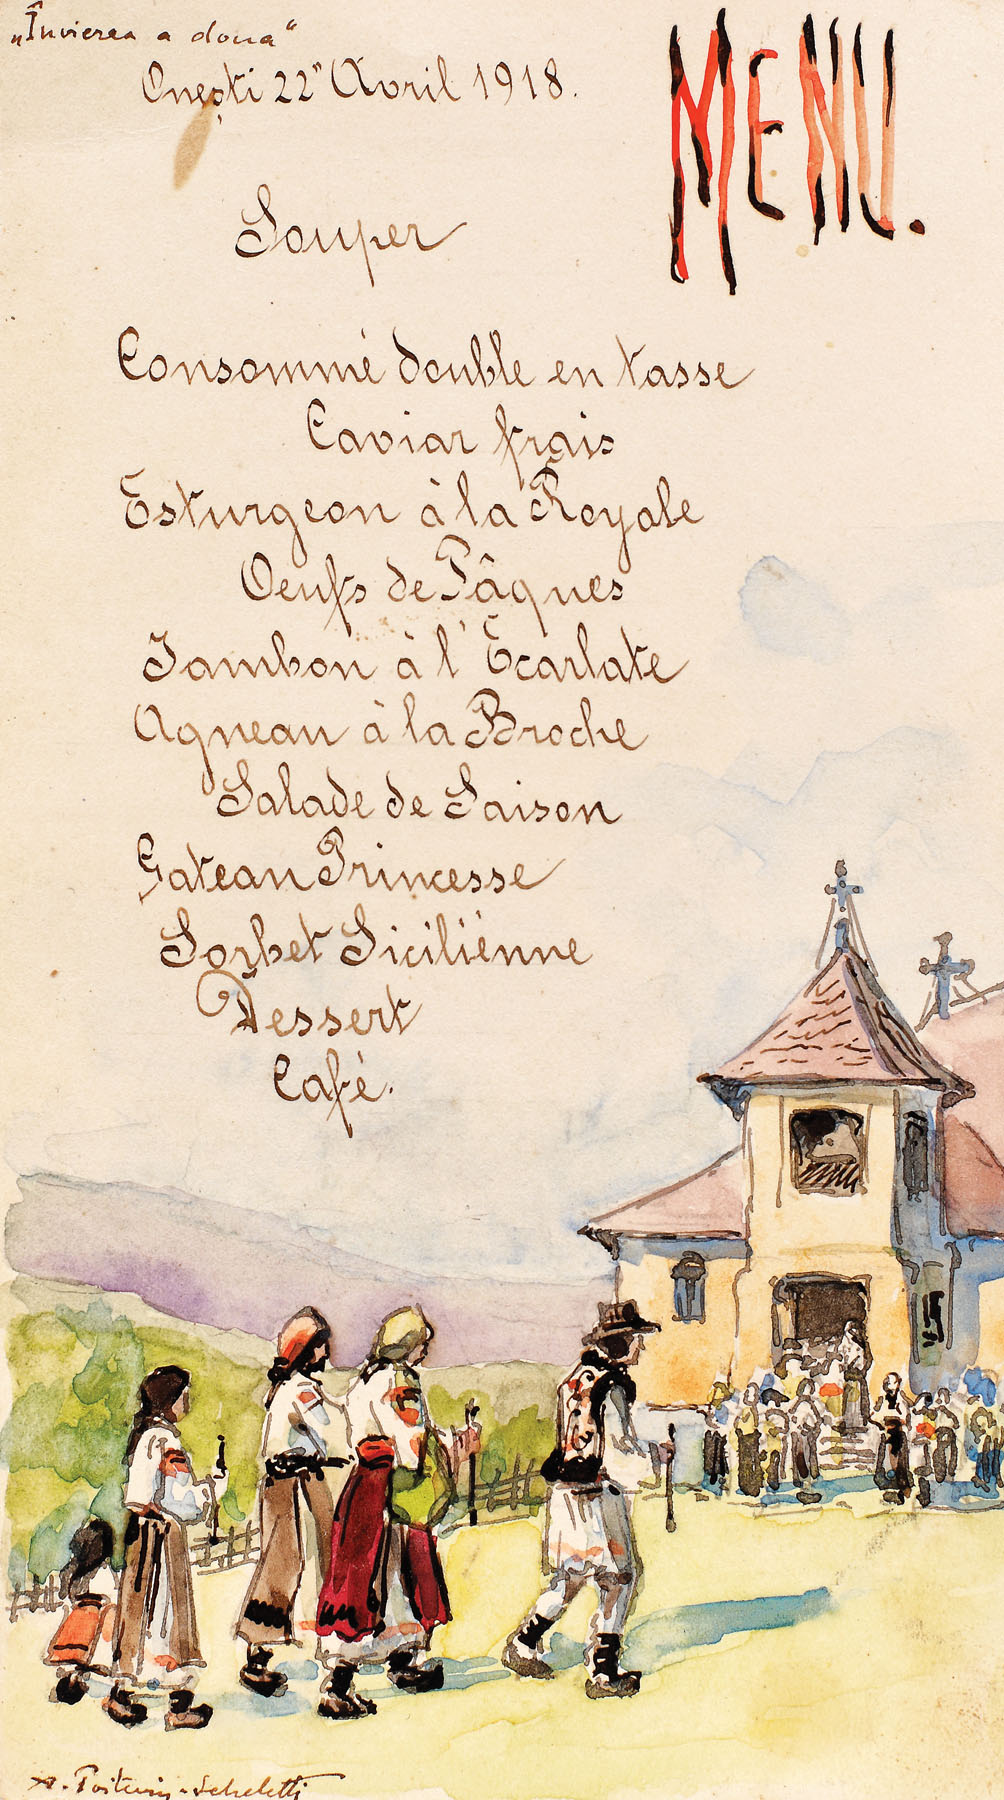 „Învierea a doua“
Onești 22" Avril 1918.
MENU.
Souper
Consommé double en tasse
Caviar frais
Esturgeon à la Royale
Oeufs de Pâques
Jambon à l'Ecarlate
Agneau à la Broche
Salade de Saison
Gateau Princesse
Sorbet Siciliénne
Dessert
Café.
A. Poitevin-Scheletti